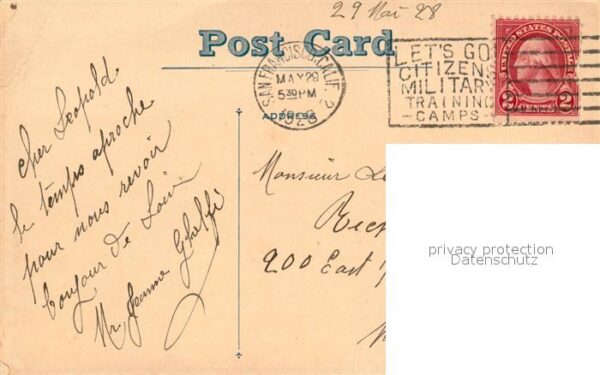 29 Mai 28
Post Card
SAN FRANCISCO, CALIF. 2
MAY 29
5 30 PM
1928
LET'S GO
CITIZENS
MILITARY
TRAINING
CAMPS
UNITED STATES POSTAGE
2 CENTS 2
ADDRESS
Cher Leopold
le temps aproche
pour nous revoir
bonjour de Loin
Mr Jeanne Ghelfi
Monsieur
200 East
privacy protection
Datenschutz